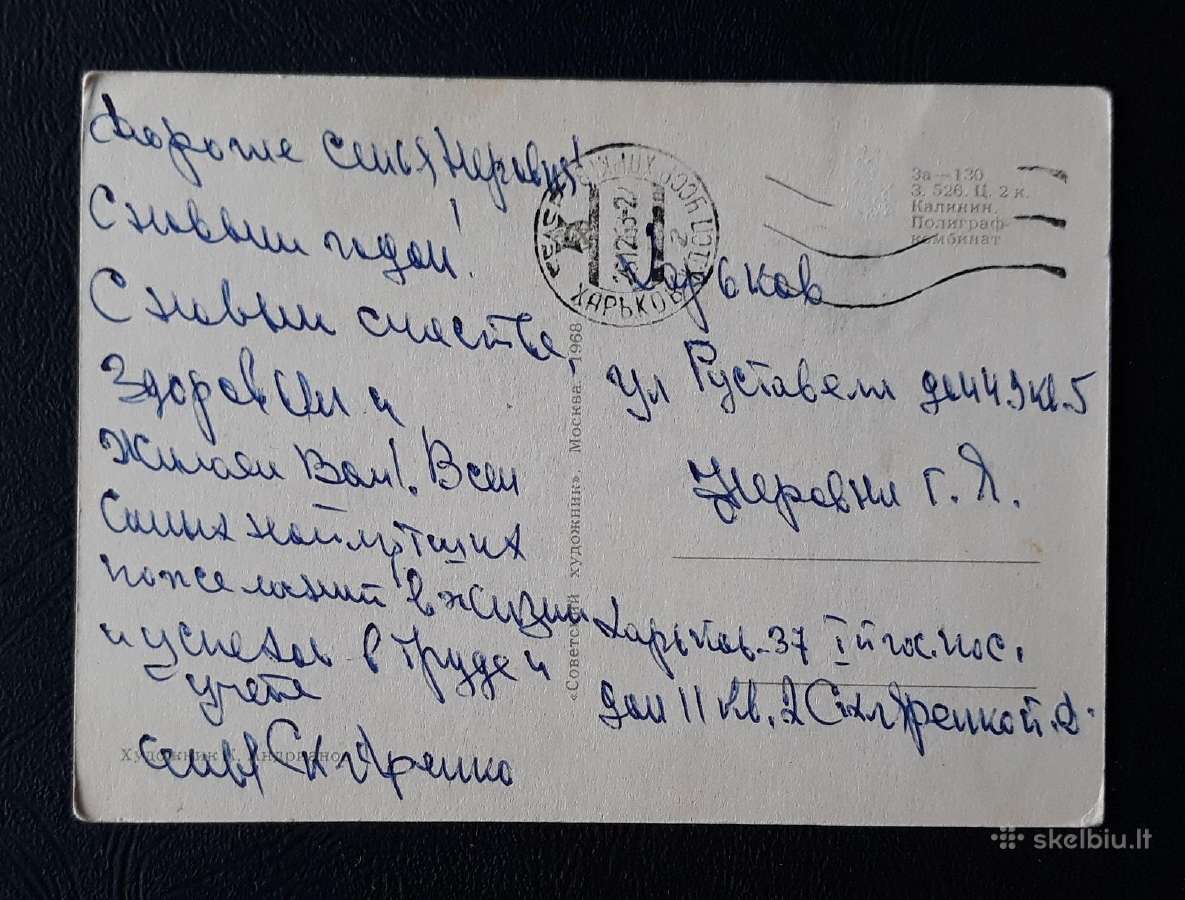 Дорогие семья Неровня!
С новым годом!
С новым счастьем,
Здоровьем и
Жилаем Вам! Всем
Самых найлутших
пожеланий в жизни
и успехов в труде и
учебе
семья Скляренко
Художник Андрианов
«Советский художник». Москва. 1968
За—130
З. 526. Ц. 2 к.
Калинин.
Полиграф-
комбинат
ХАРЬКОВ
Харьков
ул Руставели дом 49 кв. 5
Неровни Г. Я.
Харьков-37 гос. пос.
дом 11 кв. 2 Скляренкой.
skelbiu.lt